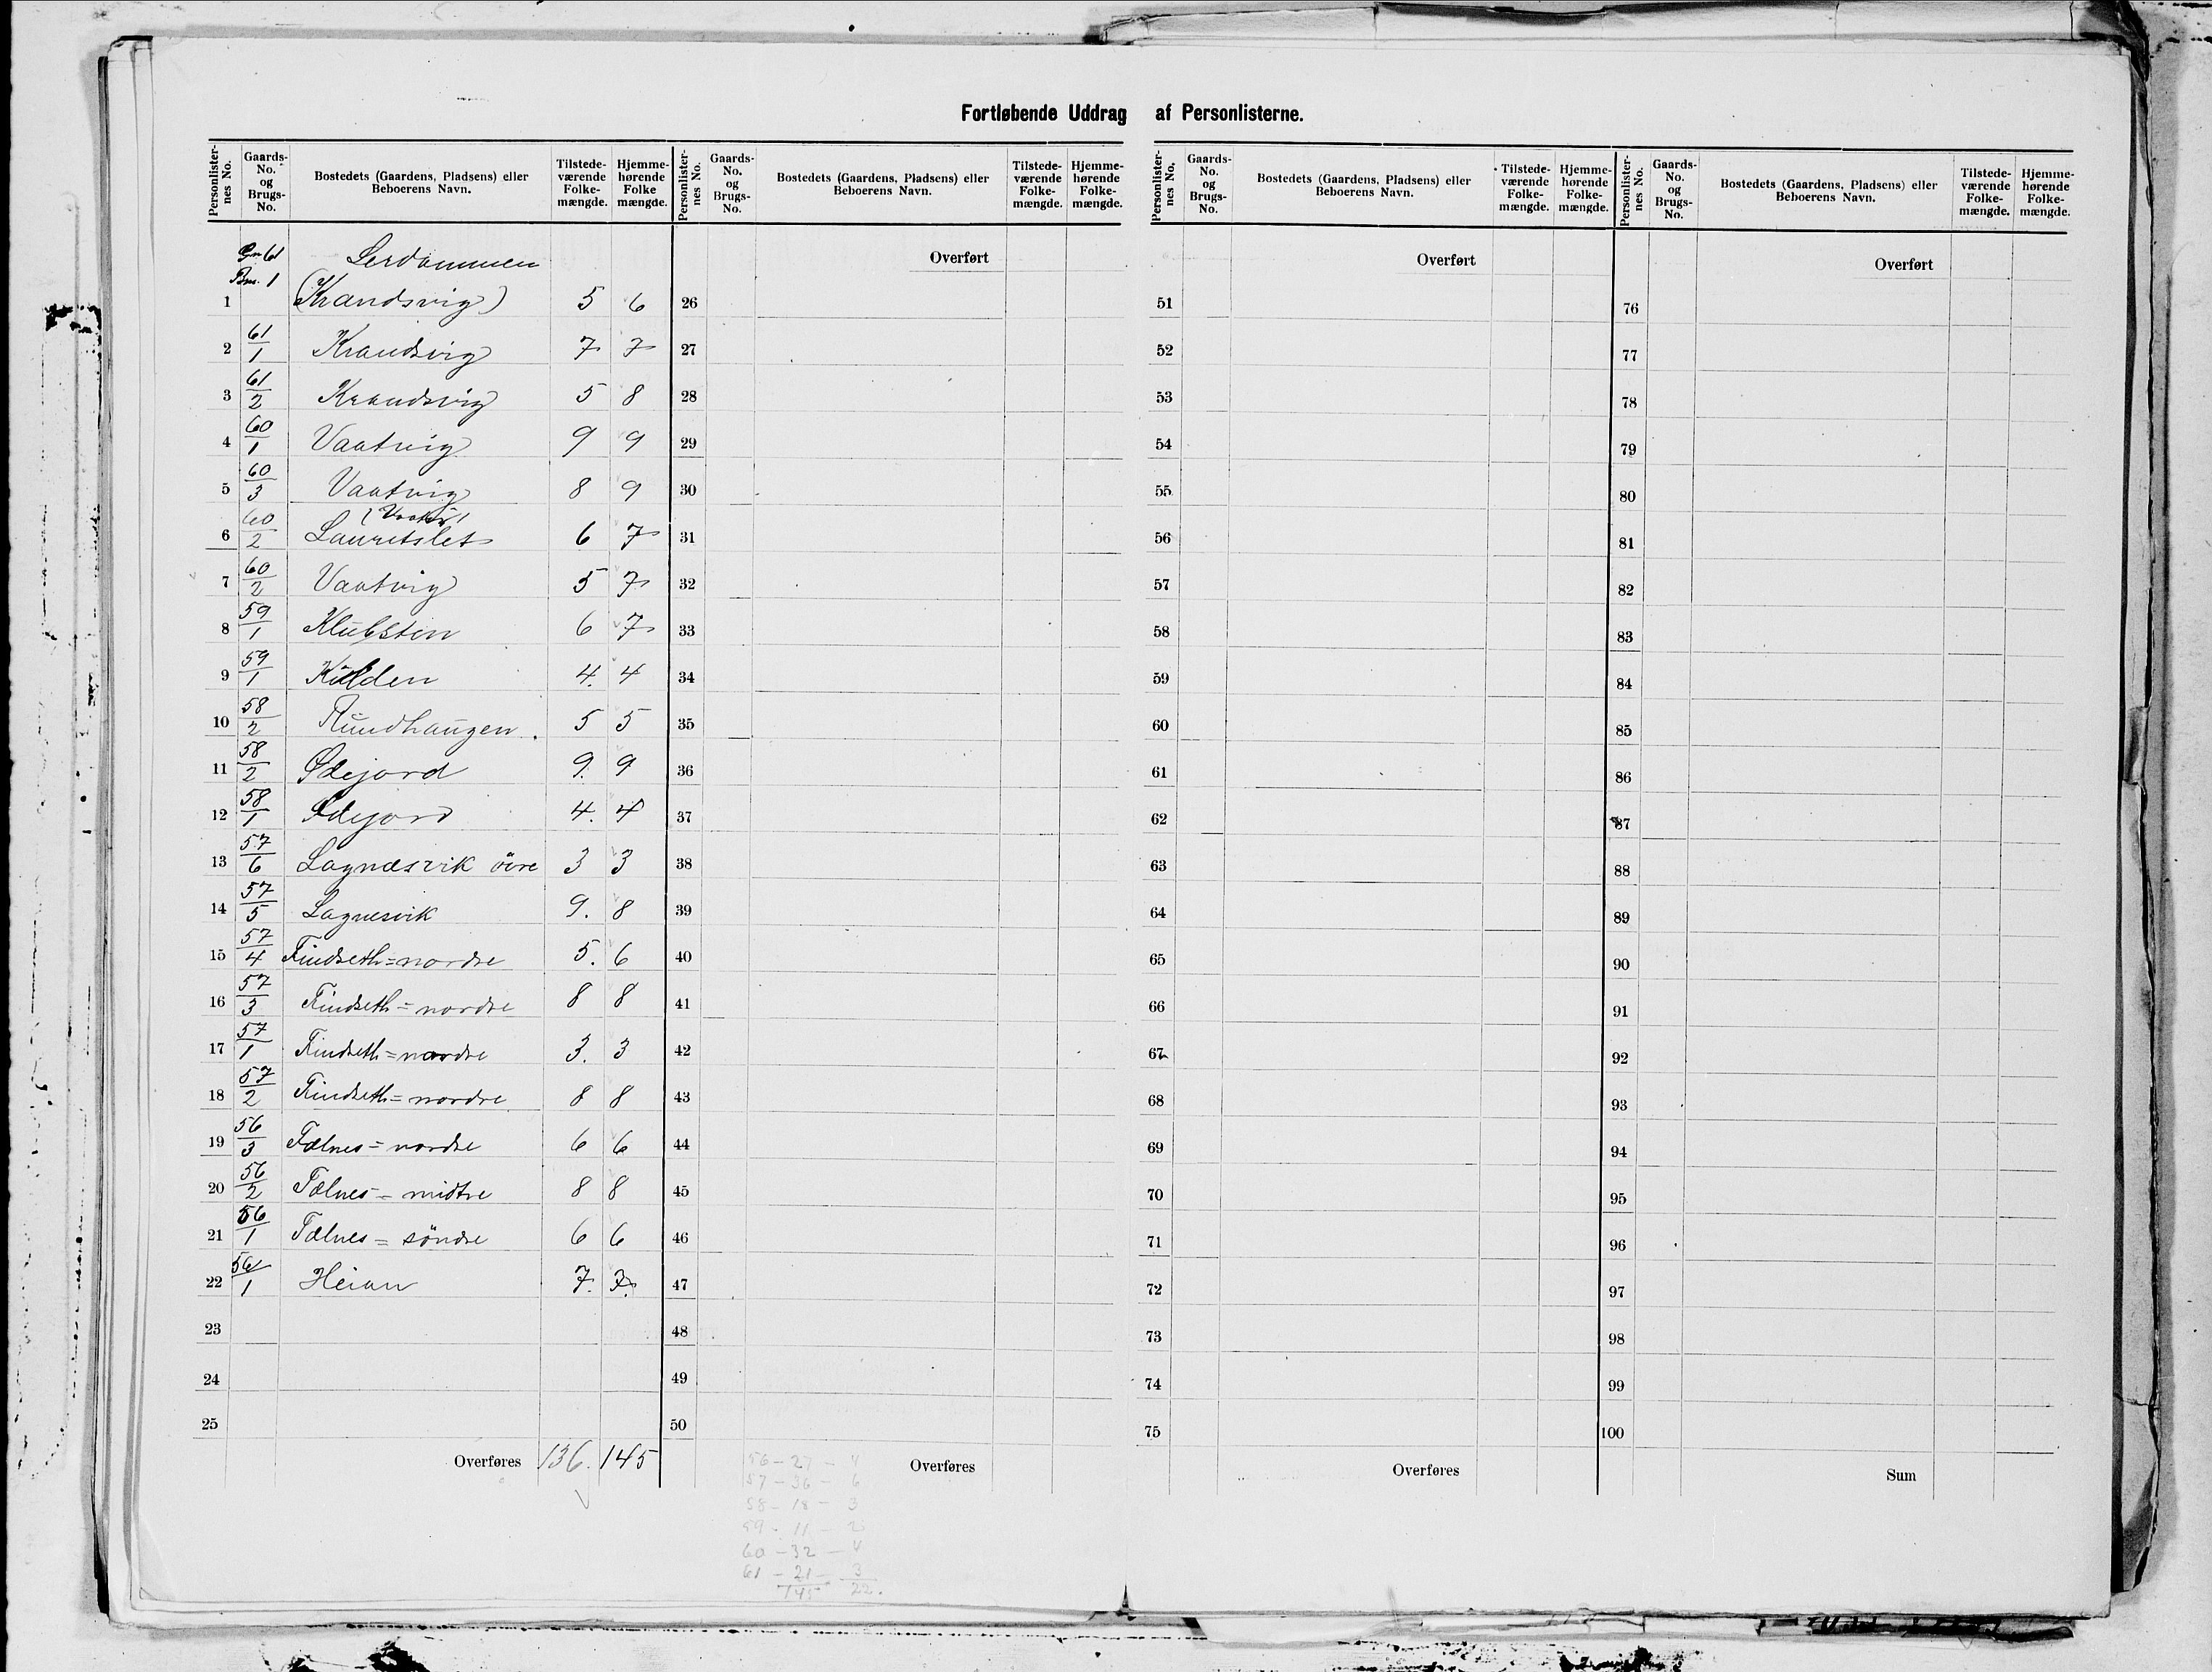 Fortløbende Uddrag af Personlisterne.
Personlister-nes No. Gaards-No. og Brugs-No. Bostedets (Gaardens, Pladsens) eller Beboerens Navn. Tilstede-værende Folke-mængde. Hjemme-hørende Folke mængde.
Gn 61 Lerdammen
Bn. 1
1 (Krandsvig) 5 6
2 61/1 Krandsvig 7 7
3 61/2 Krandsvig 5 8
4 60/1 Vaatvig 9 9
5 60/3 Vaatvig 8 9
(Vaatvig)
6 60/2 Lauretslet 6 7
7 60/2 Vaatvig 5 7
8 59/1 Klubsten 6 7
9 59/1 Kilden 4. 4
10 58/2 Rundhaugen. 5 5
11 58/2 Ødejord 9. 9
12 58/1 Ødejord 4. 4
13 57/6 Lagnæsvik öire 3 3
14 57/5 Lagnesvik 9. 8
15 57/4 Findseth=nordre 5. 6
16 57/3 Findseth=nordre 8 8
17 57/1 Findseth=nordre 3. 3
18 57/2 Findseth=nordre 8 8
19 56/3 Fælnes=nordre 6 6
20 56/2 Fælnes=midtre 8 8
21 56/1 Fælnes=söndre 6 6
22 56/1 Heian 7. 7.
23
24
25
Overføres 136. 145
Personlister-nes No. Gaards-No. og Brugs-No. Bostedets (Gaardens, Pladsens) eller Beboerens Navn. Tilstede-værende Folke-mængde. Hjemme-hørende Folke-mængde.
Overført
26
27
28
29
30
31
32
33
34
35
36
37
38
39
40
41
42
43
44
45
46
47
48
49
50
Overføres
56 – 27 – 4
57 – 36 – 6
58 – 18 – 3
59 – 11 – 2
60 – 32 – 4
61 – 21 – 3
145 22.
Personlister-nes No. Gaards-No. og Brugs-No. Bostedets (Gaardens, Pladsens) eller Beboerens Navn. Tilstede-værende Folke-mængde. Hjemme-hørende Folke-mængde.
Overført
51
52
53
54
55
56
57
58
59
60
61
62
63
64
65
66
67
68
69
70
71
72
73
74
75
Overføres
Personlister-nes No. Gaards-No. og Brugs-No. Bostedets (Gaardens, Pladsens) eller Beboerens Navn. Tilstede-værende Folke-mængde. Hjemme-hørende Folke-mængde.
Overført
76
77
78
79
80
81
82
83
84
85
86
87
88
89
90
91
92
93
94
95
96
97
98
99
100
Sum